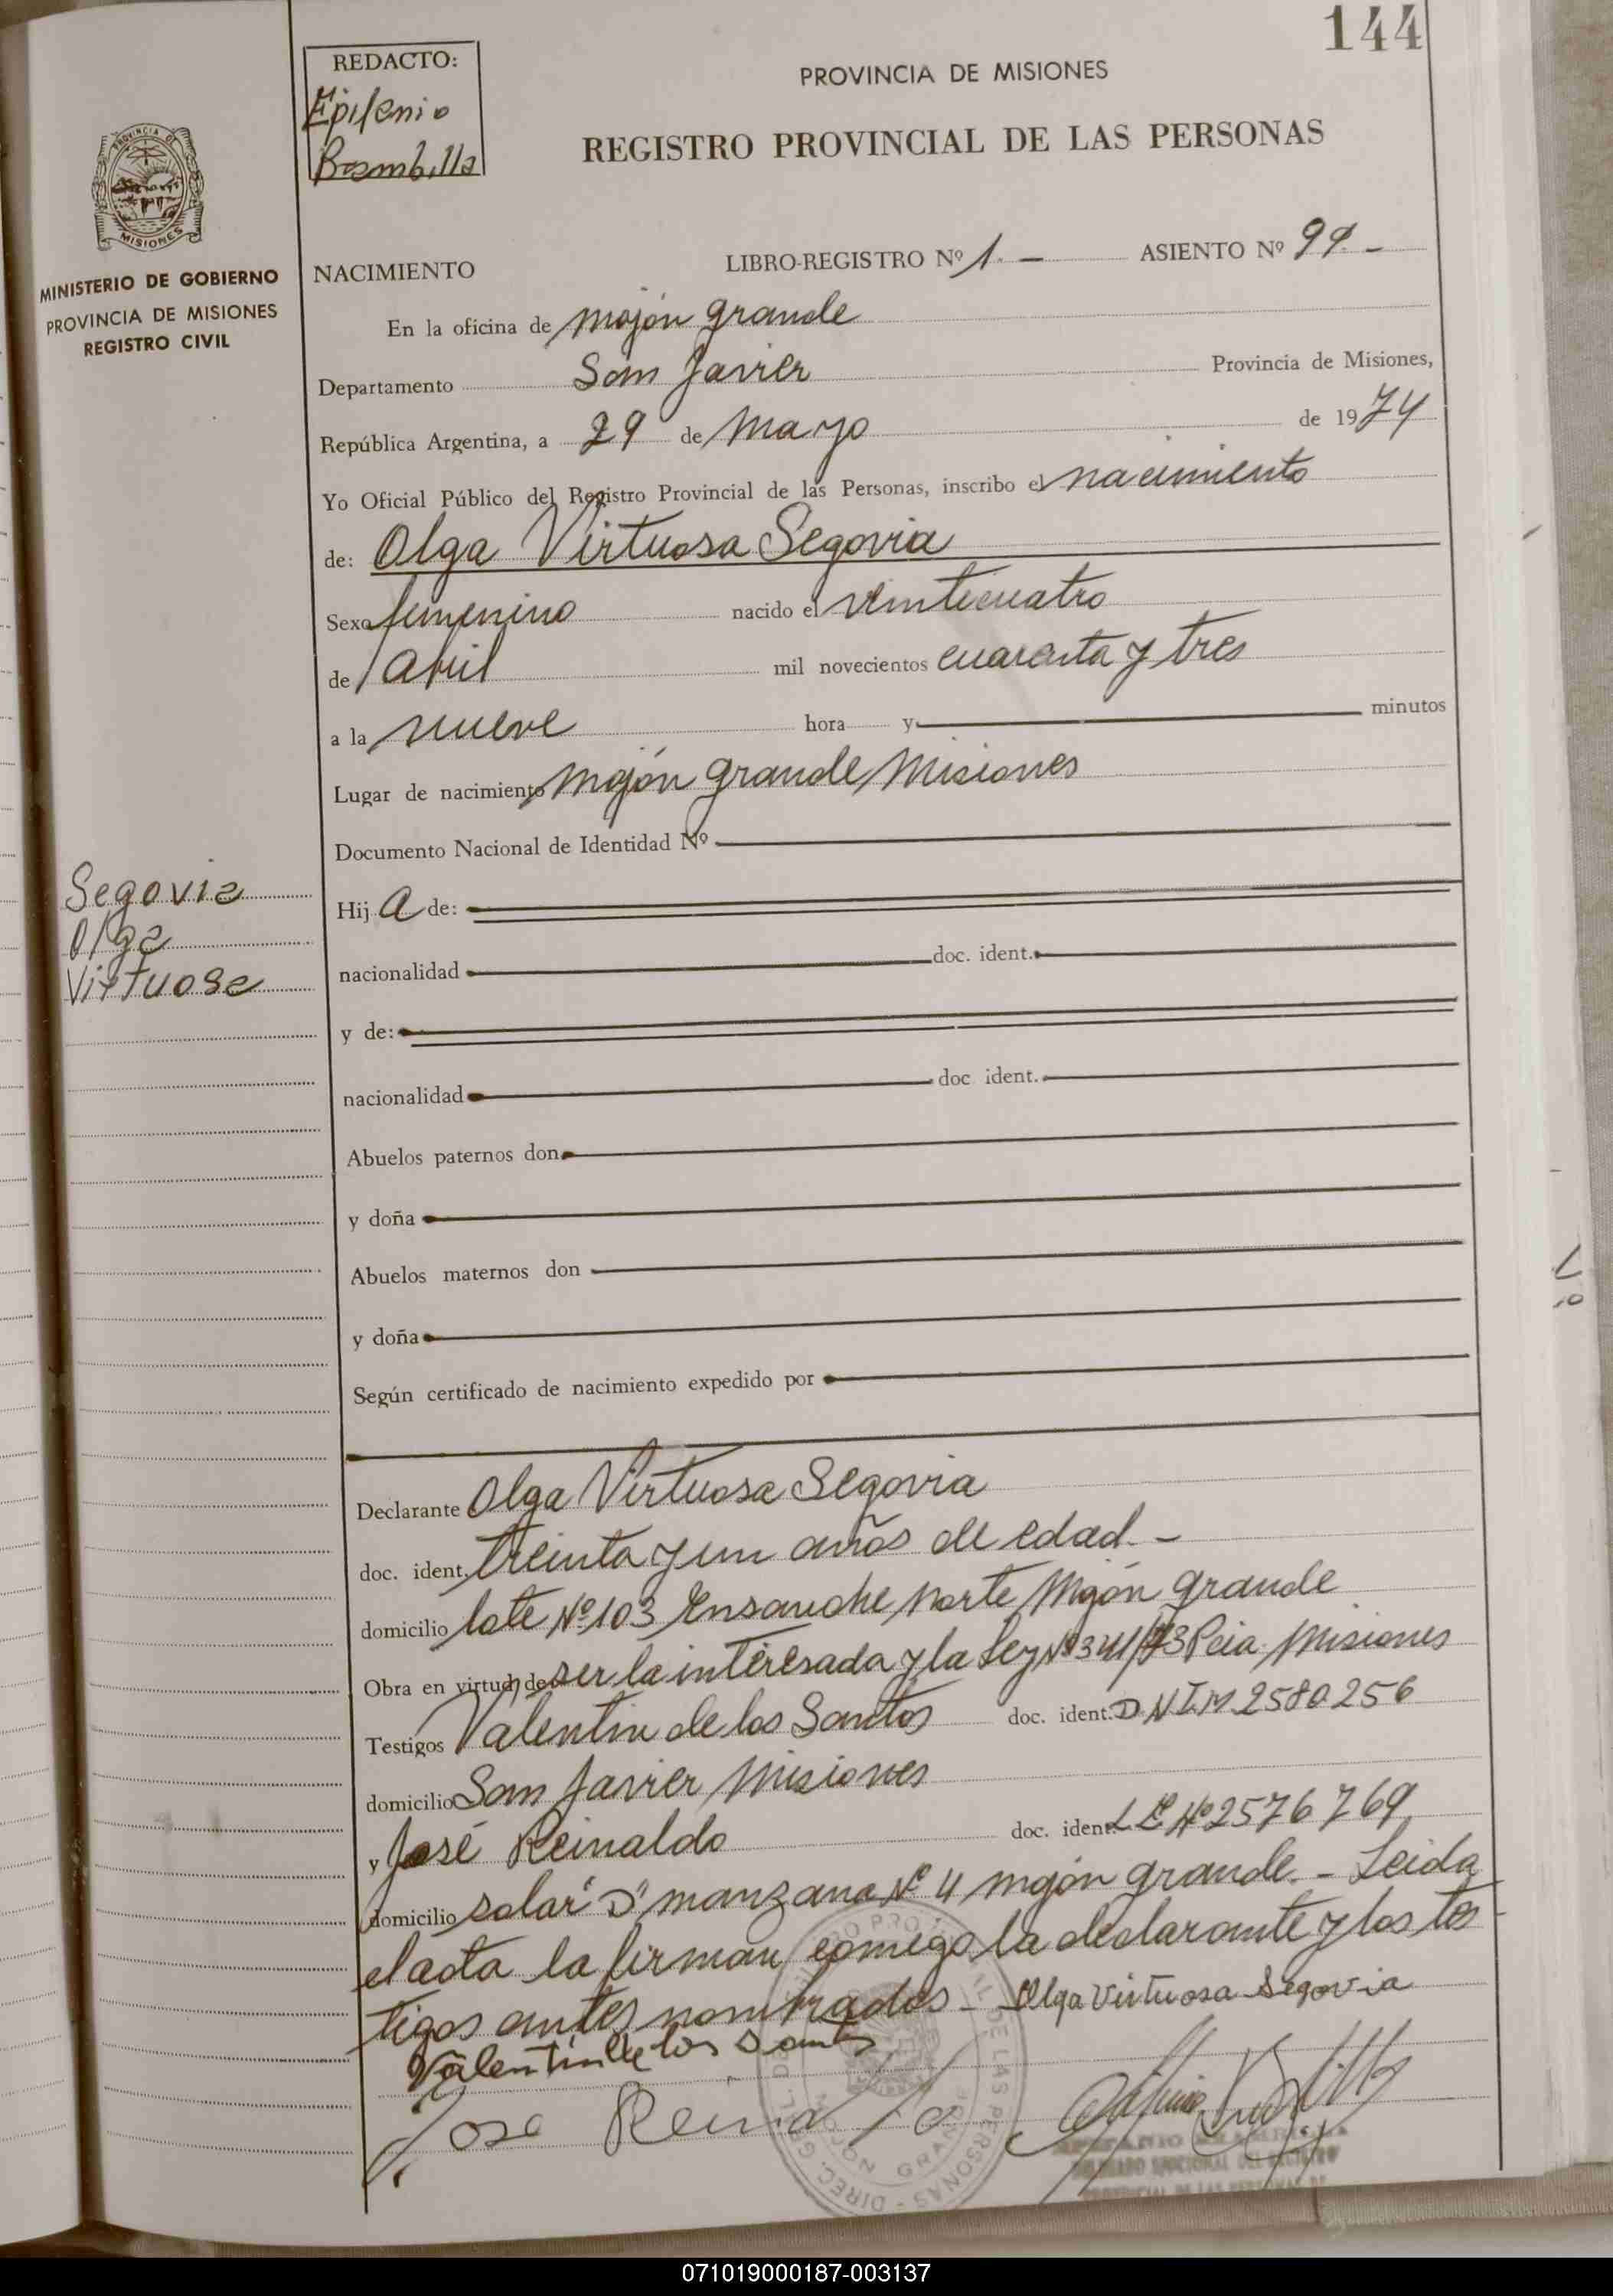 144
REDACTO:
Epifenio
Brambilla
PROVINCIA DE MISIONES
REGISTRO PROVINCIAL DE LAS PERSONAS
PROVINCIA DE
MISIONES
MINISTERIO DE GOBIERNO
PROVINCIA DE MISIONES
REGISTRO CIVIL
NACIMIENTO LIBRO-REGISTRO Nº 1.- ASIENTO Nº 99.-
En la oficina de Mojón grande
Departamento San Javier Provincia de Misiones,
República Argentina, a 29 de Mayo de 1974
Yo Oficial Público del Registro Provincial de las Personas, inscribo el nacimiento
de: Olga Virtuosa Segovia
Sexo femenino nacido el veinticuatro
de Abril mil novecientos cuarenta y tres
a la nueve hora y minutos
Lugar de nacimiento Mojón grande Misiones
Documento Nacional de Identidad Nº
Segovia
Olga
Virtuosa
Hij a de:
nacionalidad doc. ident.
y de:
nacionalidad doc. ident.
Abuelos paternos don
y doña
Abuelos maternos don
y doña
Según certificado de nacimiento expedido por
Declarante Olga Virtuosa Segovia
doc. ident. treinta y un años de edad.-
domicilio lote Nº 103 Ensanche Norte Mojón grande
Obra en virtud de ser la interesada y la Ley Nº 341/73 Pcia. Misiones
Testigos Valentin de los Santos doc. ident. DNIM 2580256
domicilio San Javier Misiones
y José Reinaldo doc. ident. LE Nº 2576769
domicilio solar "D" manzana Nº 4 Mojón grande.- Leida
el acta la firman comigo la declarante y los tes
tigos antes nombrados - Olga Virtuosa Segovia
Valentin de los Santos
Jose Reinaldo
MOJÓN GRANDE
071019000187-003137